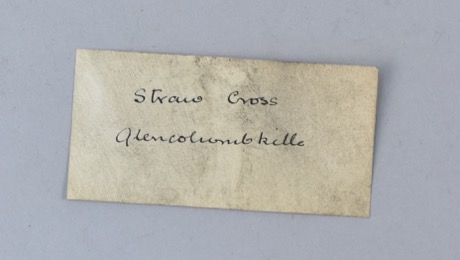 Straw Cross
Glencolumbkille